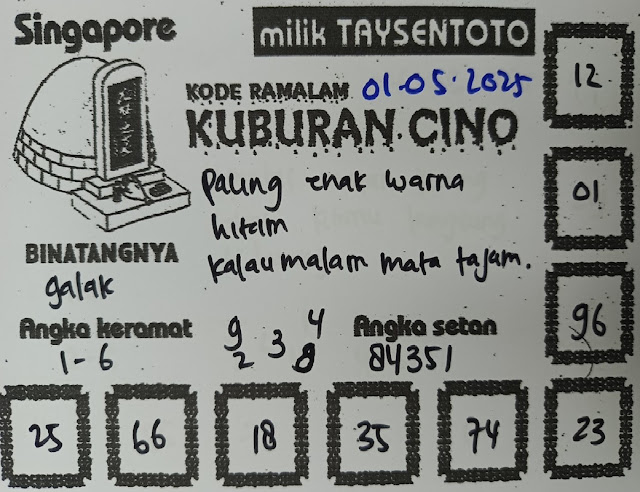 Singapore
milik TAYSENTOTO
KODE RAMALAM 01-05-2025
KUBURAN CINO
Paling enak warna
hitam
kalau malam mata tajam.
BINATANGNYA
galak
Angka keramat
1-6
9 4
3
2 8
Angka setan
84351
12
01
96
23
25 66 18 35 74